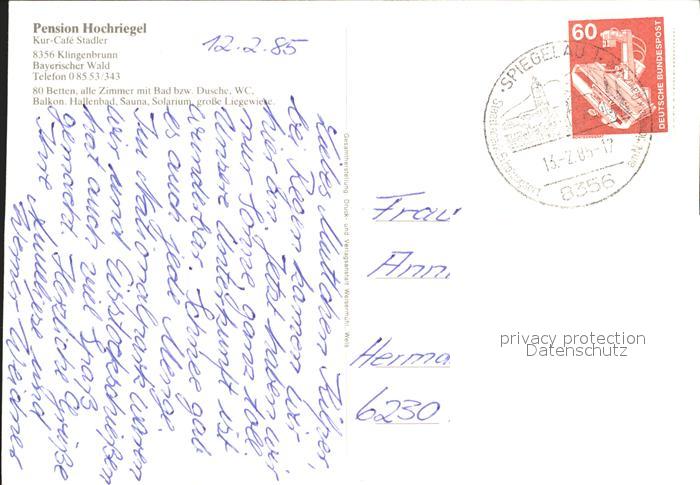 Pension Hochriegel
Kur-Café Stadler
8356 Klingenbrunn
Bayerischer Wald
Telefon 0 85 53/343
80 Betten, alle Zimmer mit Bad bzw. Dusche, WC,
Balkon. Hallenbad, Sauna, Solarium, große Liegewiese.
12.2.85
bei Regen kamen wir
hier an. Jetzt haben wir
nur Sonne, ganz toll.
Unsere Unterkunft ist
wunderbar. Schnee gab
es auch jede Menge.
Im Nationalpark waren
wir und Eisstockschießen
hat auch viel Spaß
gemacht. Herzliche Grüße
Ihre
und
Werner
Gesamtherstellung Druck- und Verlagsanstalt Welsermühl, Wels
60
DEUTSCHE BUNDESPOST
SPIEGELAU 1
13.-2.85-17
8356
Frau
Ann
Herma
6230
privacy protection
Datenschutz